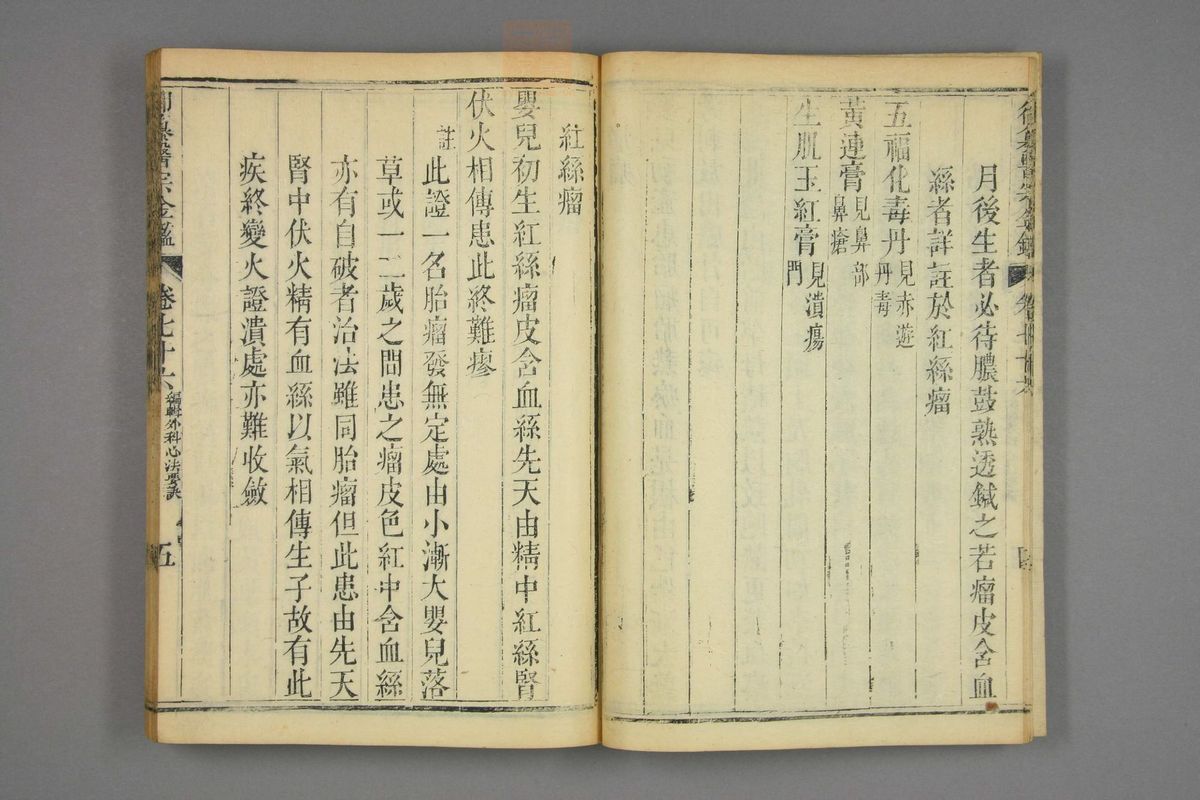 月後生者必待膿鼓熟透鍼之若瘤皮含血
絲者詳註於紅絲瘤
五福化毒丹見赤遊丹毒
黃連膏見鼻部鼻瘡
生肌玉紅膏見潰瘍門
紅絲瘤
嬰兒初生紅絲瘤皮含血絲先天由精中紅絲腎
伏火相傳患此終難瘳
註此證一名胎瘤發無定處由小漸大嬰兒落
草或一二歲之間患之瘤皮色紅中含血絲
亦有自破者治法雖同胎瘤但此患由先天
腎中伏火精有血絲以氣相傳生子故有此
疾終變火證潰處亦難收斂
御纂醫宗金鑑
卷七十六
編輯外科心法要訣
五